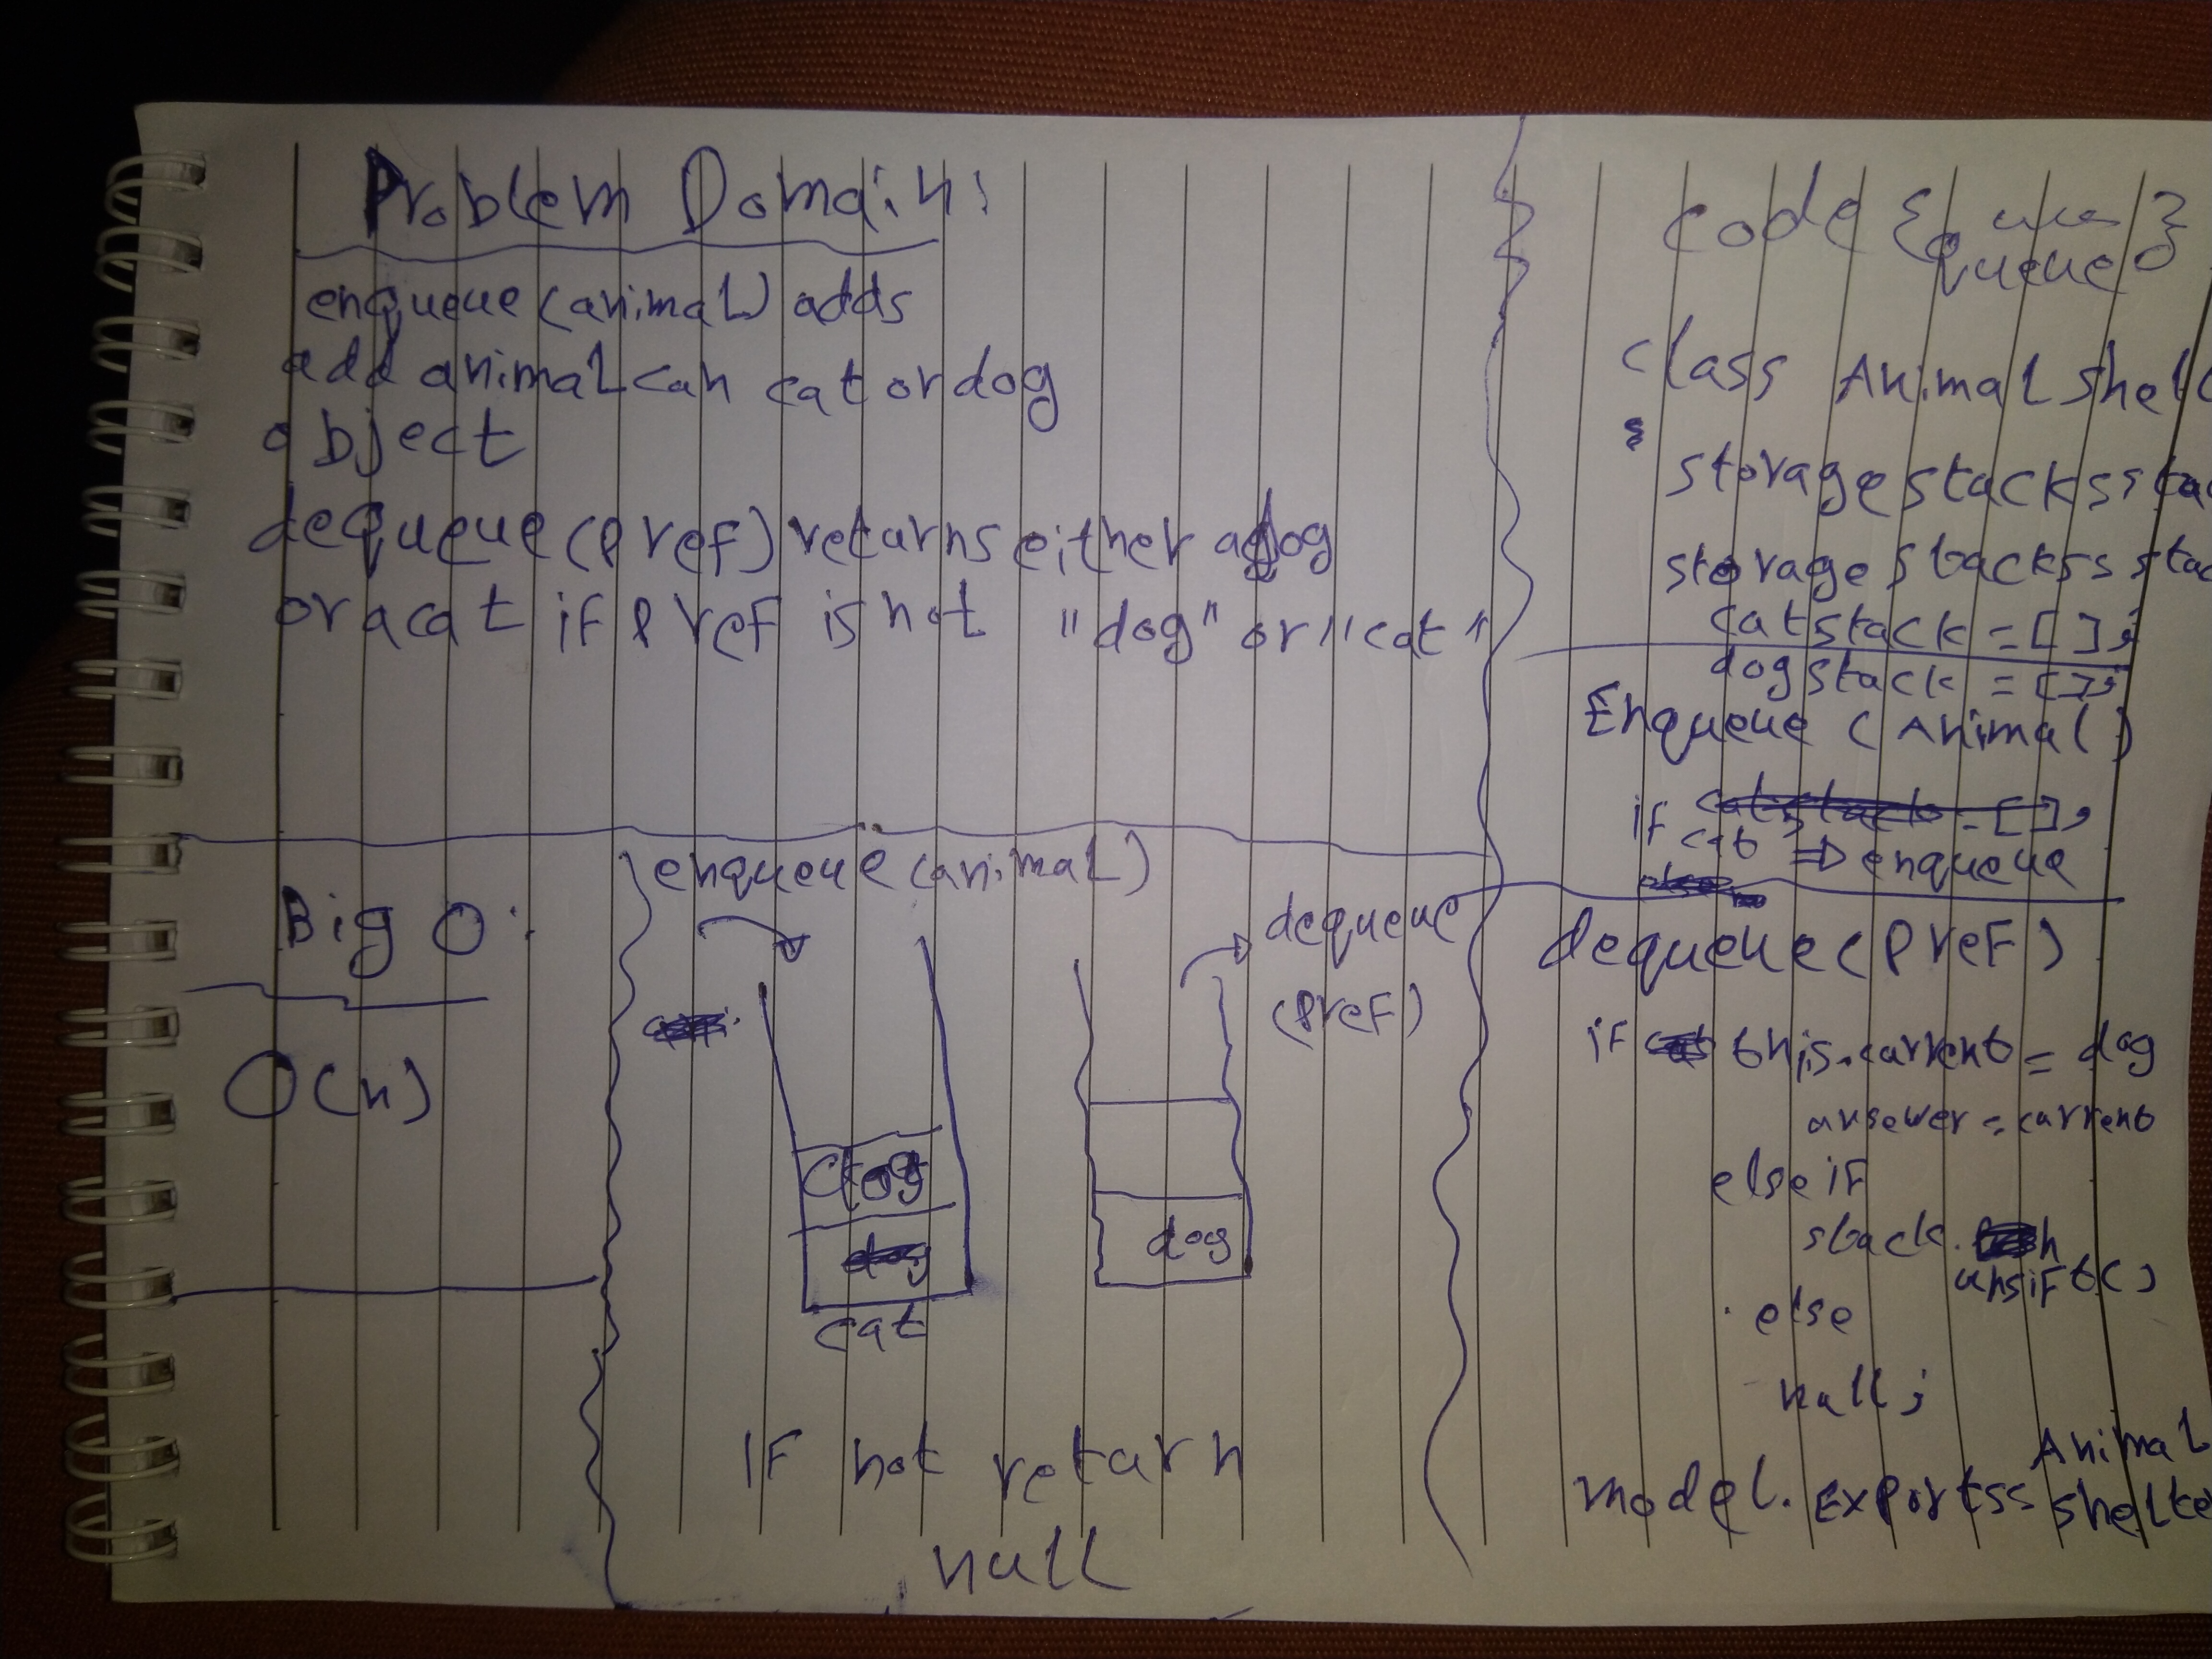 Problem Domain:
enqueue (animal) adds
add animal can cat or dog
object
dequeue (pref) returns either a dog
or a cat if pref is not "dog" or "cat"
Big O:
O(n)
enqueue (animal)
dog
cat
dog
dequeue
(pref)
IF not return
null
code
class Animal shel
storage stacks
storage stackss
catstack = [];
dogstack = [];
Enqueue (Anima()
if
⇒ enqueue
dequeue (Pref)
if this.current = dog
answer = current
else if
stack.
unsift()
else
null;
Animal
model.Exports= shelte